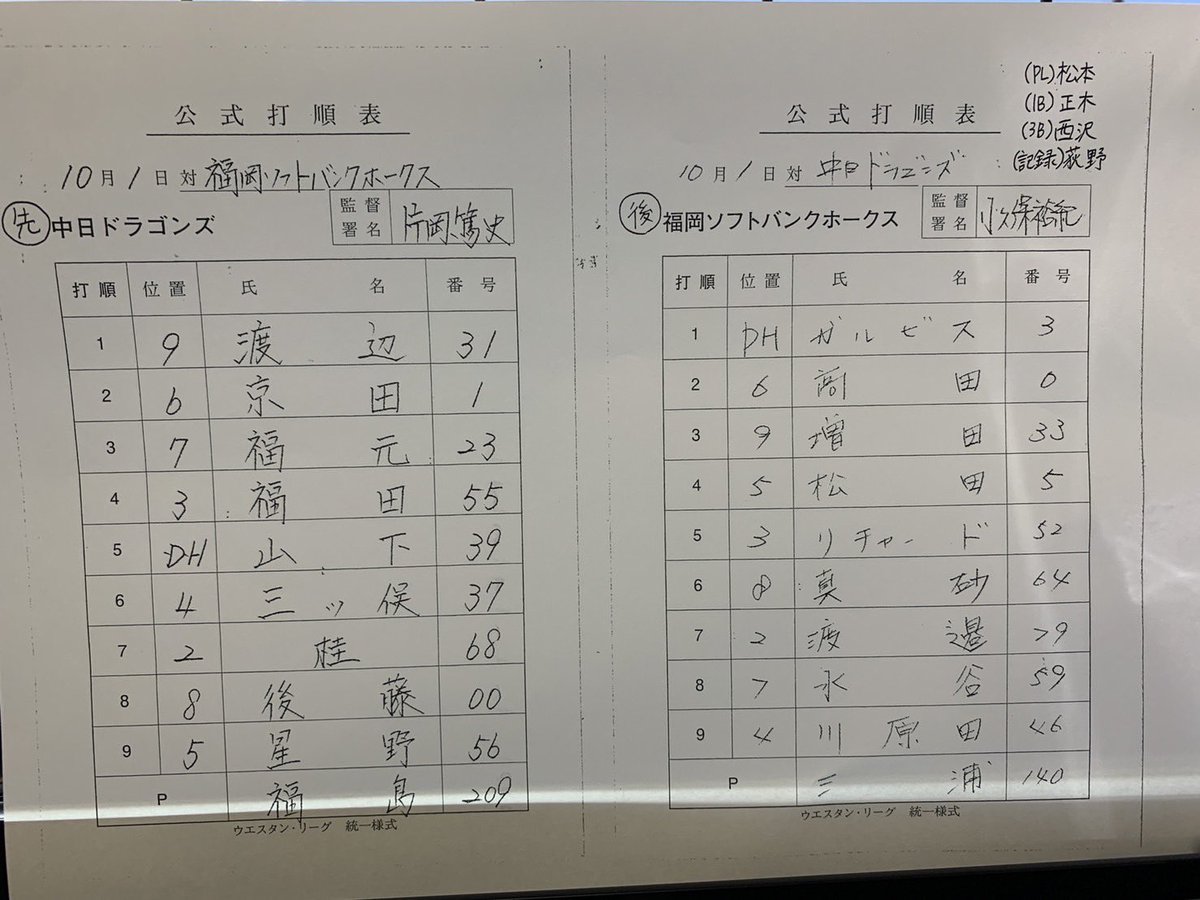 公式打順表
10月1日対 福岡ソフトバンクホークス
先 中日ドラゴンズ 監督署名 片岡篤史
打順 位置 氏名 番号
1 9 渡辺 31
2 6 京田 1
3 7 福元 23
4 3 福田 55
5 DH 山下 39
6 4 三ッ俣 37
7 2 桂 68
8 8 後藤 00
9 5 星野 56
P 福島 209
ウエスタン・リーグ 統一様式
(PL)松本
(1B)正木
(3B)西沢
(記録)荻野
公式打順表
10月1日対 中日ドラゴンズ
後 福岡ソフトバンクホークス 監督署名 小久保裕紀
打順 位置 氏名 番号
1 DH ガルビス 3
2 6 高田 0
3 9 増田 33
4 5 松田 5
5 3 リチャード 52
6 8 真砂 64
7 2 渡邉 79
8 7 水谷 59
9 4 川原田 46
P 三浦 140
ウエスタン・リーグ 統一様式